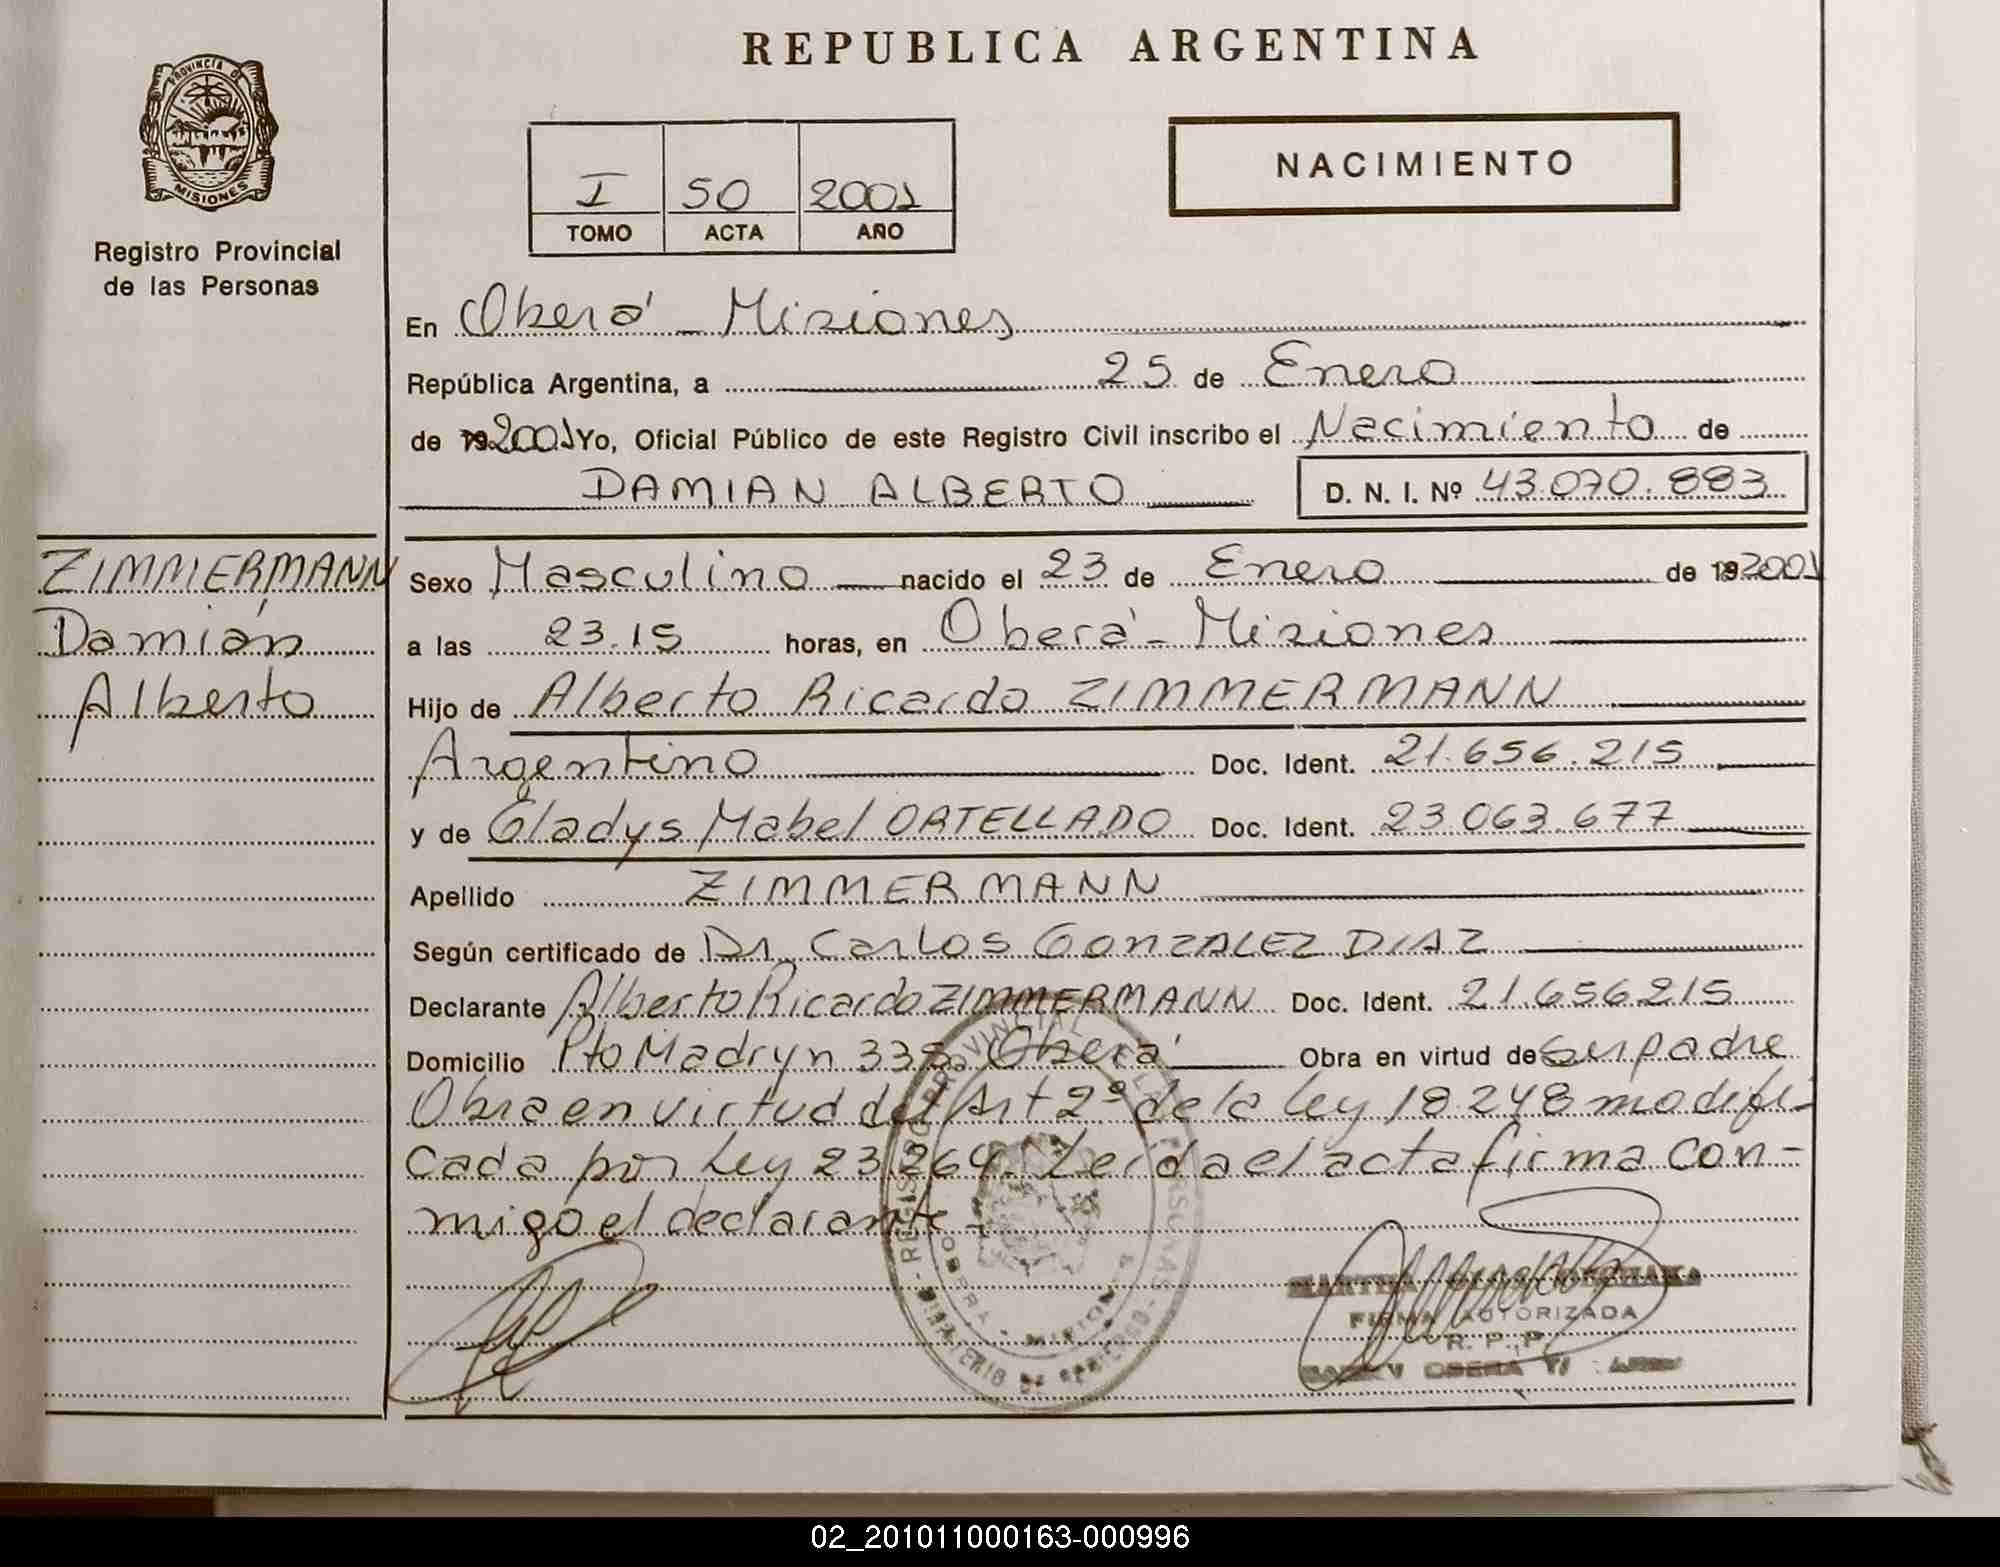 REPUBLICA ARGENTINA
PROVINCIA DE
MISIONES
Registro Provincial
de las Personas
I 50 2001
TOMO ACTA AÑO
NACIMIENTO
En Oberá - Misiones
República Argentina, a 25 de Enero
de 19 2001 Yo, Oficial Público de este Registro Civil inscribo el Nacimiento de
DAMIAN ALBERTO D. N. I. Nº 43.070.883
ZIMMERMANN
Damián
Alberto
Sexo Masculino nacido el 23 de Enero de 19 2001
a las 23.15 horas, en Oberá - Misiones
Hijo de Alberto Ricardo ZIMMERMANN
Argentino Doc. Ident. 21.656.215
y de Gladys Mabel ORTELLADO Doc. Ident. 23.063.677
Apellido ZIMMERMANN
Según certificado de Dr. Carlos GONZALEZ DIAZ
Declarante Alberto Ricardo ZIMMERMANN Doc. Ident. 21.656215
Domicilio Pto Madryn 335 Oberá Obra en virtud de ser padre
Obra en virtud del Art 2º de la Ley 18.248 modifi-
cada por Ley 23.264. Leída el acta firma con-
migo el declarante -
FIRMA AUTORIZADA
R. P. P.
OBERA
02_201011000163-000996